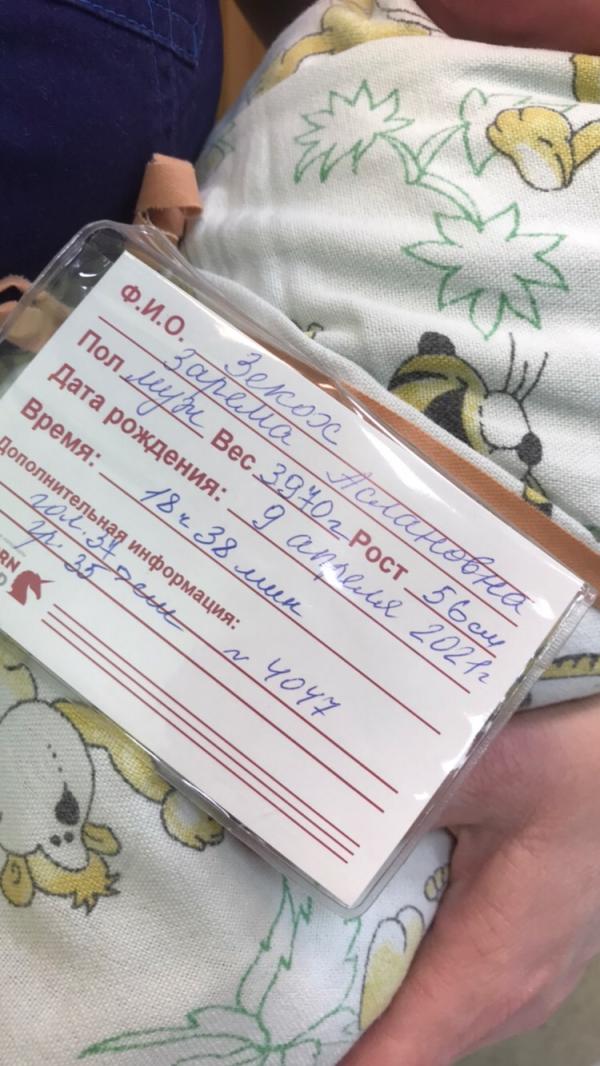 Ф.И.О. Зекох
Зарема Аслановна
Пол муж Вес 3970г Рост 56см
Дата рождения: 9 апреля 2021г
Время: 18ч 38 мин
Дополнительная информация:
гол. 34
гр. 35 см
N 4047
RN